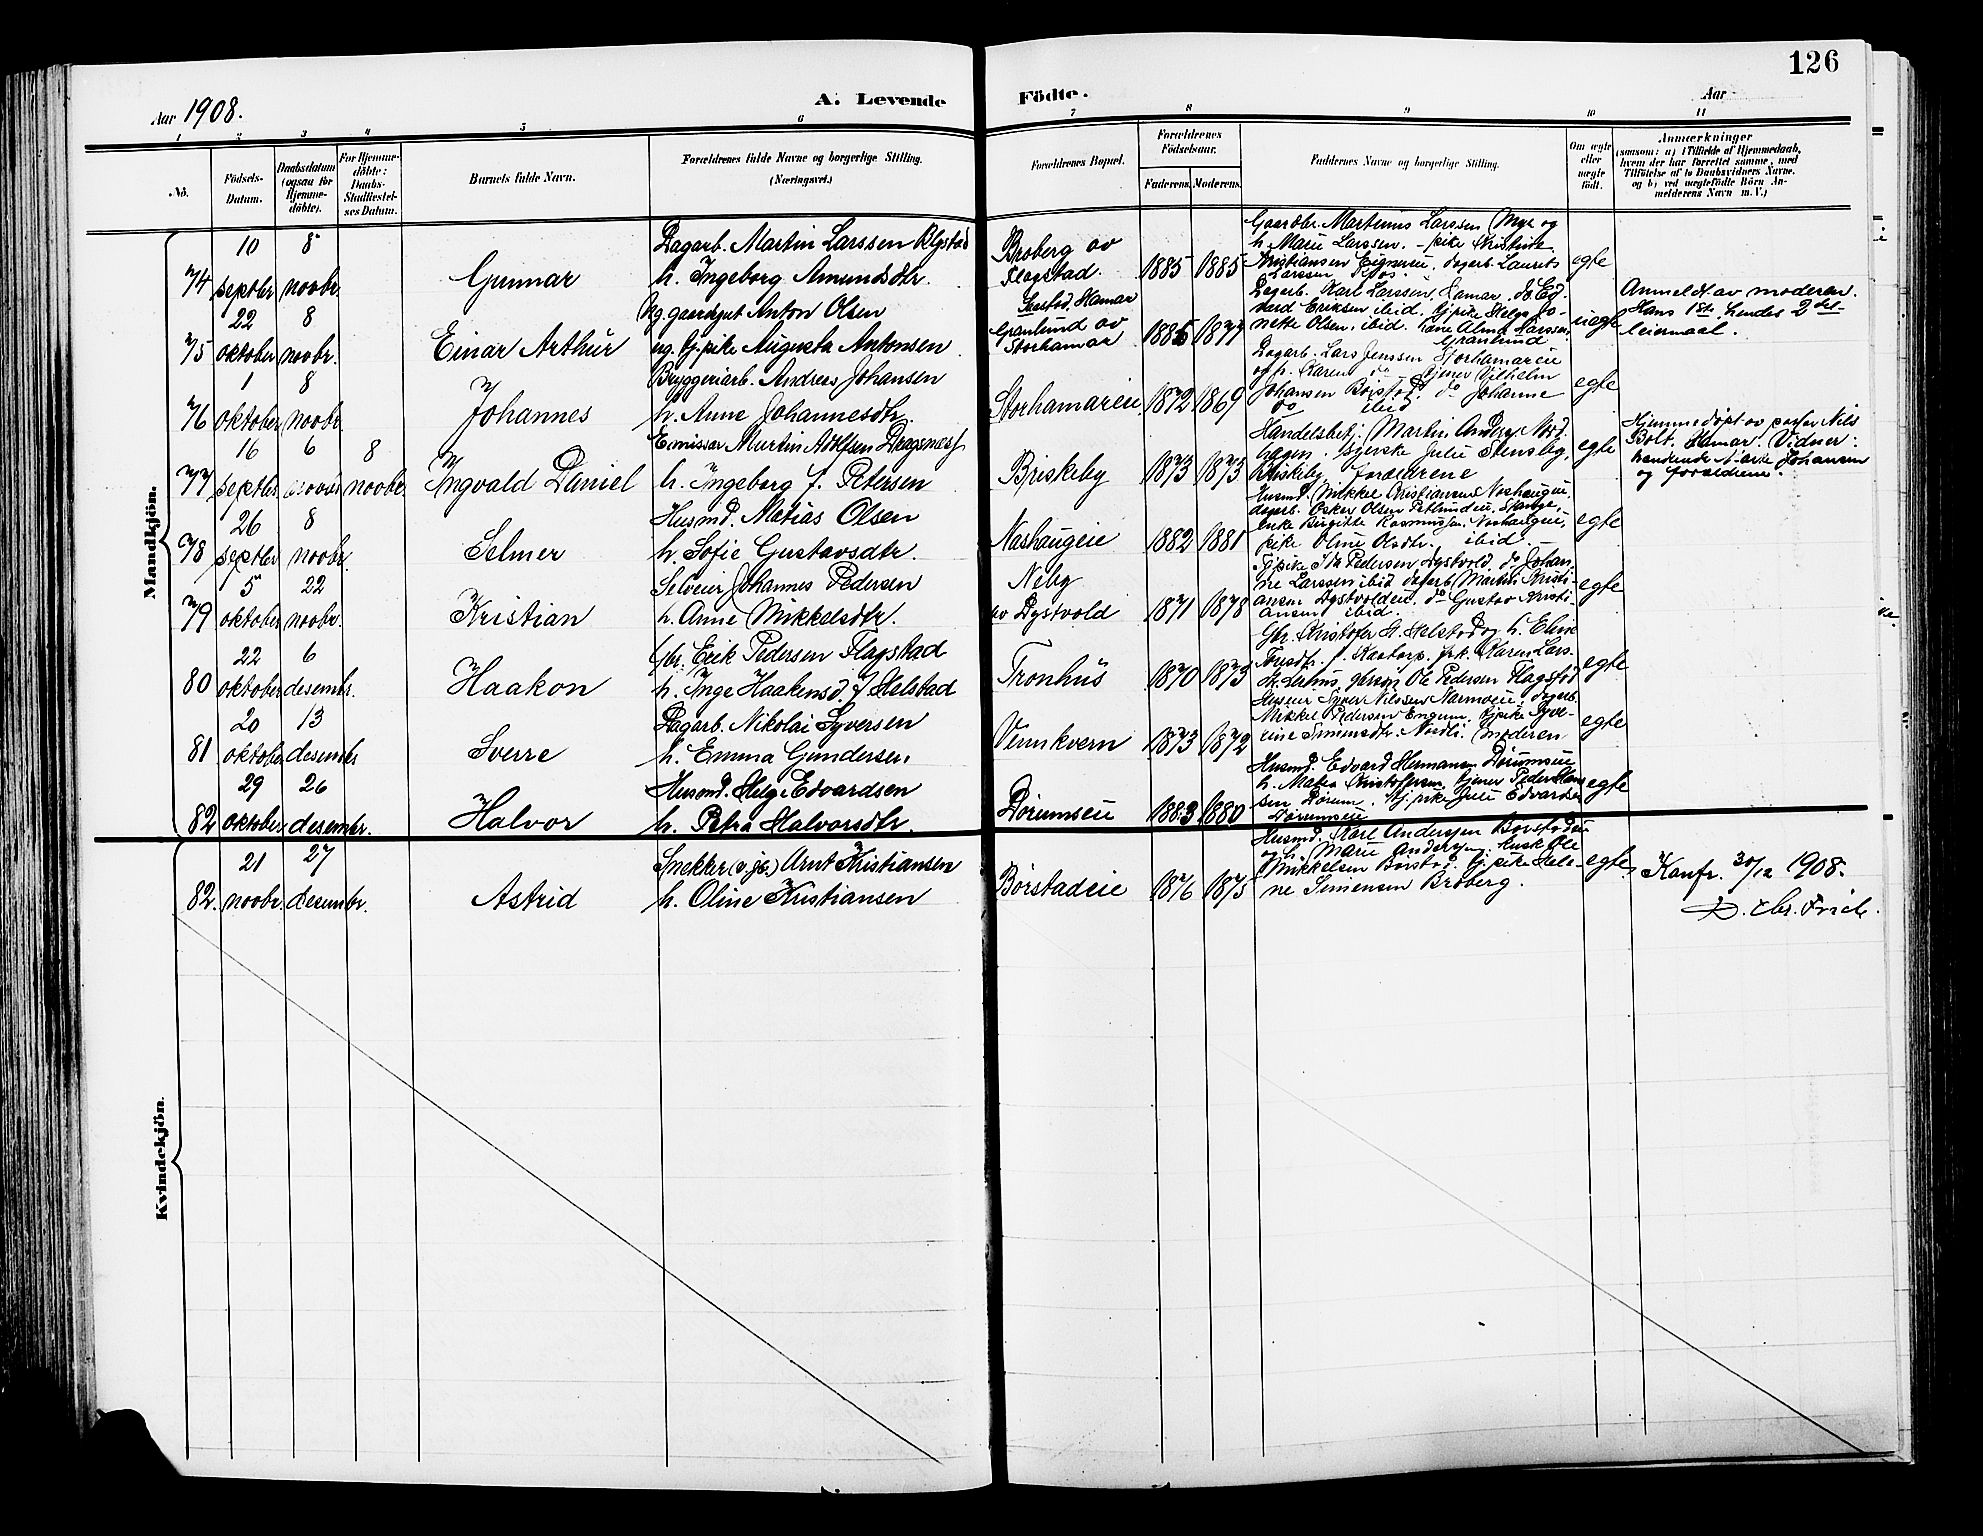 126
Aar 1908.
A. Levende
Födte.
Aar
1 2 3 4 5 6 7 8 9 10 11
No.
Födsels-
Datum.
Daabsdatum
(ogsaa for
Hjemme-
döbte).
For Hjemme-
döbte:
Daabs-
Stadfæstel-
ses Datum.
Barnets fulde Navn.
Forældrenes fulde Navne og borgerlige Stilling.
(Næringsvei.)
Forældrenes Bopæl.
Forældrenes
Födselsaar.
Faderens. Moderens.
Faddernes Navne og borgerlige Stilling.
Om ægte
eller
uægte
født.
Anmærkninger
(saasom: a) i Tilfælde af Hjemmedaab,
hvem der har forrettet samme, med
Tilföielse af to Daabsvidners Navne,
og b) ved uægtefödte Börn An-
melderens Navn m. V.)
Mandkjön.
74
10
septbr
8
novbr.
Gunnar
Dagarb. Martin Larssen
h. Ingeborg Amundsdtr.
Broberg av
Flagstad.
1885 1885
Gaardbr. Martinius Larssen Myr og
h. Marie Larssen. pike Kristine
Kristiansen dagarb. Laurits
Larssen
egte
75
22
oktober
8
novbr.
Einar Arthur
Ug. gaardgut Anton Olsen
ug. tj.pike Augusta Antonsen
Hamar
Granlund av
Storhamar
1885 1877
Dagarb. Karl Larssen, Hamar. do Ed-
vard Eriksen ibid. tj.pike Helga Jo-
nette Olsen, ibid. kone Alma Larssen,
Granlund
uegte
Anmeldt av moderen.
Hans 1ste, hendes 2det
leiermaal.
76
1
oktober
8
novbr.
Johannes
Bryggeriarb. Andreas Johansen
h. Anne Johannesdtr.
Storhamareie
1872 1869
Dagarb. Lars Jenssen Storhamareie
og h. Karen do tjener Vilhelm
Johansen Börstad, do Johanne
do ibid
egte
77
16
septbr
6
novbr
8
novbr.
Ingvald Daniel
Emissær Martin Adolfsen Dragsnes
h. Ingeborg f. Petersen
Briskeby
1873 1873
Handelsbetj. Martin Anders. Nord-
hagen. Julie Stensby,
Briskeby, forældrene
egte
Hjemmedöpt av pastor Nils
Bolt, Hamar. Vidner:
Johansen
og forældrene.
78
26
septbr
8
novbr.
Selmer
Husmd. Matias Olsen
h. Sofie Gustavsdtr.
Nashaugeie
1882 1881
Husmd. Mikkel Kristiansen Nashaugeie,
dagarb. Oskar Olsen Stange,
enke Birgitte Rasmussen, Nashaugeie,
pike Oline Olsdtr. ibid.
egte
79
5
oktober
22
novbr.
Kristian
Selveier Johannes Pedersen
h. Anne Mikkelsdtr.
Neby
av Dystvold
1871 1878
Tj.pike Ida Pedersen Dystvold, do Johan-
ne Larssen ibid, dagarb. Martin Kristi-
ansen Dystvoldeie, do Gustav Kristi-
ansen ibid.
egte
80
22
oktober
6
desembr.
Haakon
Gbr. Erik Pedersen Flagstad
h. Inga Haakensd. f. Helstad
Tronhus
1870 1873
Gbr. Kristofer H. Helstad og h. Eline
f. Kaatorp. frk. Karen Lars-
gbrsön Ole Pedersen Flagstad
egte
81
20
oktober
13
desembr
Sverre
Dagarb. Nikolai Syversen
h. Emma Gundersen.
Vennkvern
1873 1872
Huseier Syver Nilssen dagarb.
Mikkel Pedersen Engum, tj.pike Syve-
rine Simensdtr. moderen
egte
82
29
oktober
26
desembr.
Halvor
Husmd. Helge Edvardsen
h. Petra Halvorsdtr.
Dörumseie
1883 1880
Husmd. Edvard Hermansen Dörumseie
h. Matea Kristofersen, tjener Peder Han-
sen Dörum. tj.pike Julie Edvardsen
Dörumseie
egte
Kvindekjön.
82.
21
novbr.
27
desembr.
Astrid
Snekker Arnt Kristiansen
h. Oline Kristiansen
Börstadeie
1876 1875
Husmd. Karl Anderssen Börstadeie
og h. Marie Anderssen, kusk Ole
Mikkelsen Börstad. tj.pike Hele-
ne Simensen Broberg.
egte
Konfr. 30/12 1908.
D. Chr. Frich.